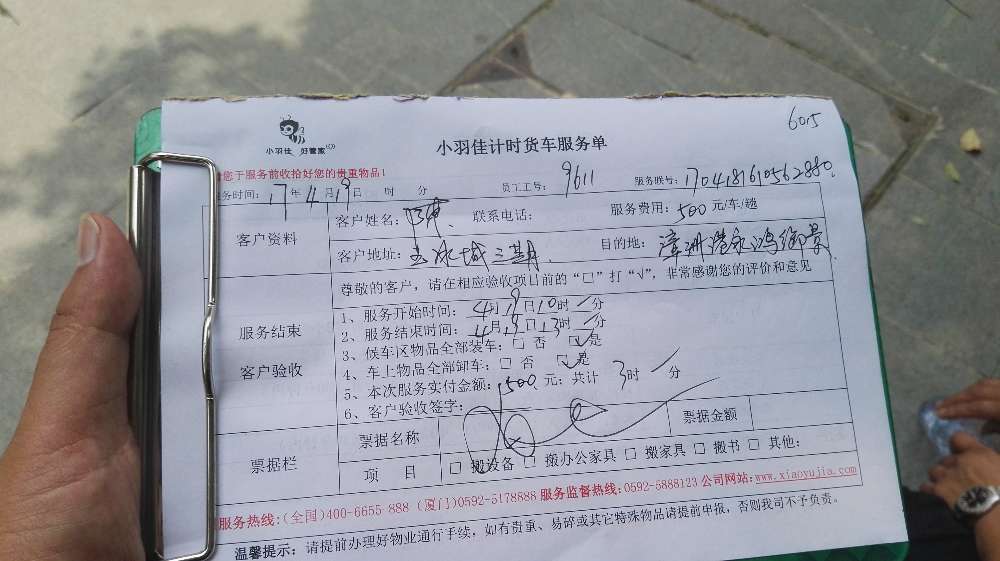 6015
小羽佳 好管家
小羽佳计时货车服务单
您于服务前收拾好您的贵重物品!
务时间: 17年4月19日 时 分 员工工号: 9611 服务联号: 1704181610562880
客户资料
客户姓名: 联系电话: 服务费用: 500元/车/趟
客户地址: 冰城三期 目的地: 漳州港永鸿御景
尊敬的客户, 请在相应验收项目前的“□”打“√”, 非常感谢您的评价和意见
服务结束
客户验收
1、服务开始时间: 4月19日10时 分
2、服务结束时间: 4月19日13时 分
3、候车区物品全部装车: □ 否 □ 是
4、车上物品全部卸车: □ 否 □ 是
5、本次服务实付金额: 500元; 共计 3时 分
6、客户验收签字:
票据栏
票据名称 票据金额
项 目 □ 搬设备 □ 搬办公家具 □ 搬家具 □ 搬书 □ 其他:
服务热线:(全国)400-6655 888 (厦门)0592-5178888 服务监督热线:0592-5888123 公司网站:www.xiaoyujia.com
温馨提示: 请提前办理好物业通行手续, 如有贵重、易碎或其它特殊物品请提前申报, 否则我司不予负责。